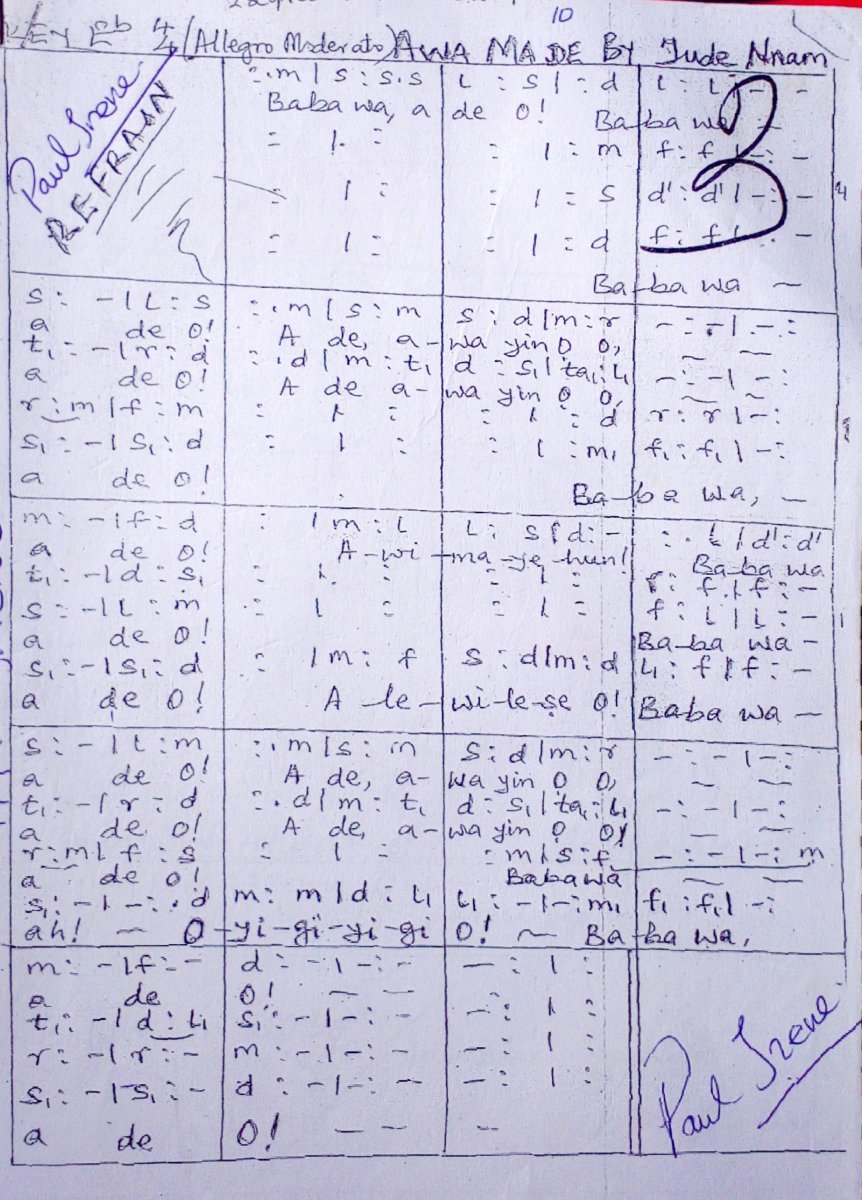 10
KEY Eb 4/4 (Allegro Moderato) AWA MA DE By Jude Nnam
Paul Irene
REFRAIN
3
: . m | s : s . s	l : s | : d	l : l | - : -
Baba wa, a de O! Ba-ba wa -
: | :	: | : m	f : f | - : -
: | :	: | : s	d' : d' | - : -
: | :	: | : d	f : f | - : -
Ba-ba wa -
s : - | l : s	: . m | s : m	s : d | m : r	- : - | - :
a de O! A de, a- wa yin O O,
t₁ : - | r : d	: . d | m : t₁	d : s₁ | ta₁ : l₁	- : - | - :
a de O! A de a- wa yin O O,
r : m | f : m	: | :	: | : d	r : r | - :
s₁ : - | s₁ : d	: | :	: | : m₁	f₁ : f₁ | - :
a de O! Ba-ba wa, -
m : - | f : d	: | m : l	l : s | d : -	: . l | d' : d'
a de O! A-wi-ma-ye-hun! Ba ba wa
t₁ : - | d : s₁	: | :	: | :	f : f | f : -
s : - | l : m	: | :	: | :	f : l | l : -
a de O! Ba-ba wa -
s₁ : - | s₁ : d	: | m : f	s : d | m : d	l₁ : f | f : -
a de O! A-le-wi-le-se O! Baba wa -
s : - | l : m	: . m | s : m	s : d | m : r	- : - | - :
a de O! A de, a- wa yin O O,
t₁ : - | r : d	: . d | m : t₁	d : s₁ | ta₁ : l₁	- : - | - :
a de O! A de, a- wa yin O O!
r : m | f : s	: | :	: m | s : f	- : - | - : m
a de O! Baba wa
s₁ : - | - : . d	m : m | d : l₁	l₁ : - | - : m₁	f₁ : f₁ | - :
ah! - O-yi-gi-yi-gi O! - Ba-ba wa,
m : - | f : -	d : - | - : -	- : | :
a de O! - -
t₁ : - | d : l₁	s₁ : - | - : -	- : | :
r : - | r : -	m : - | - : -	- : | :
s₁ : - | s₁ : -	d : - | - : -	- : | :
a de O! - - -
Paul Irene